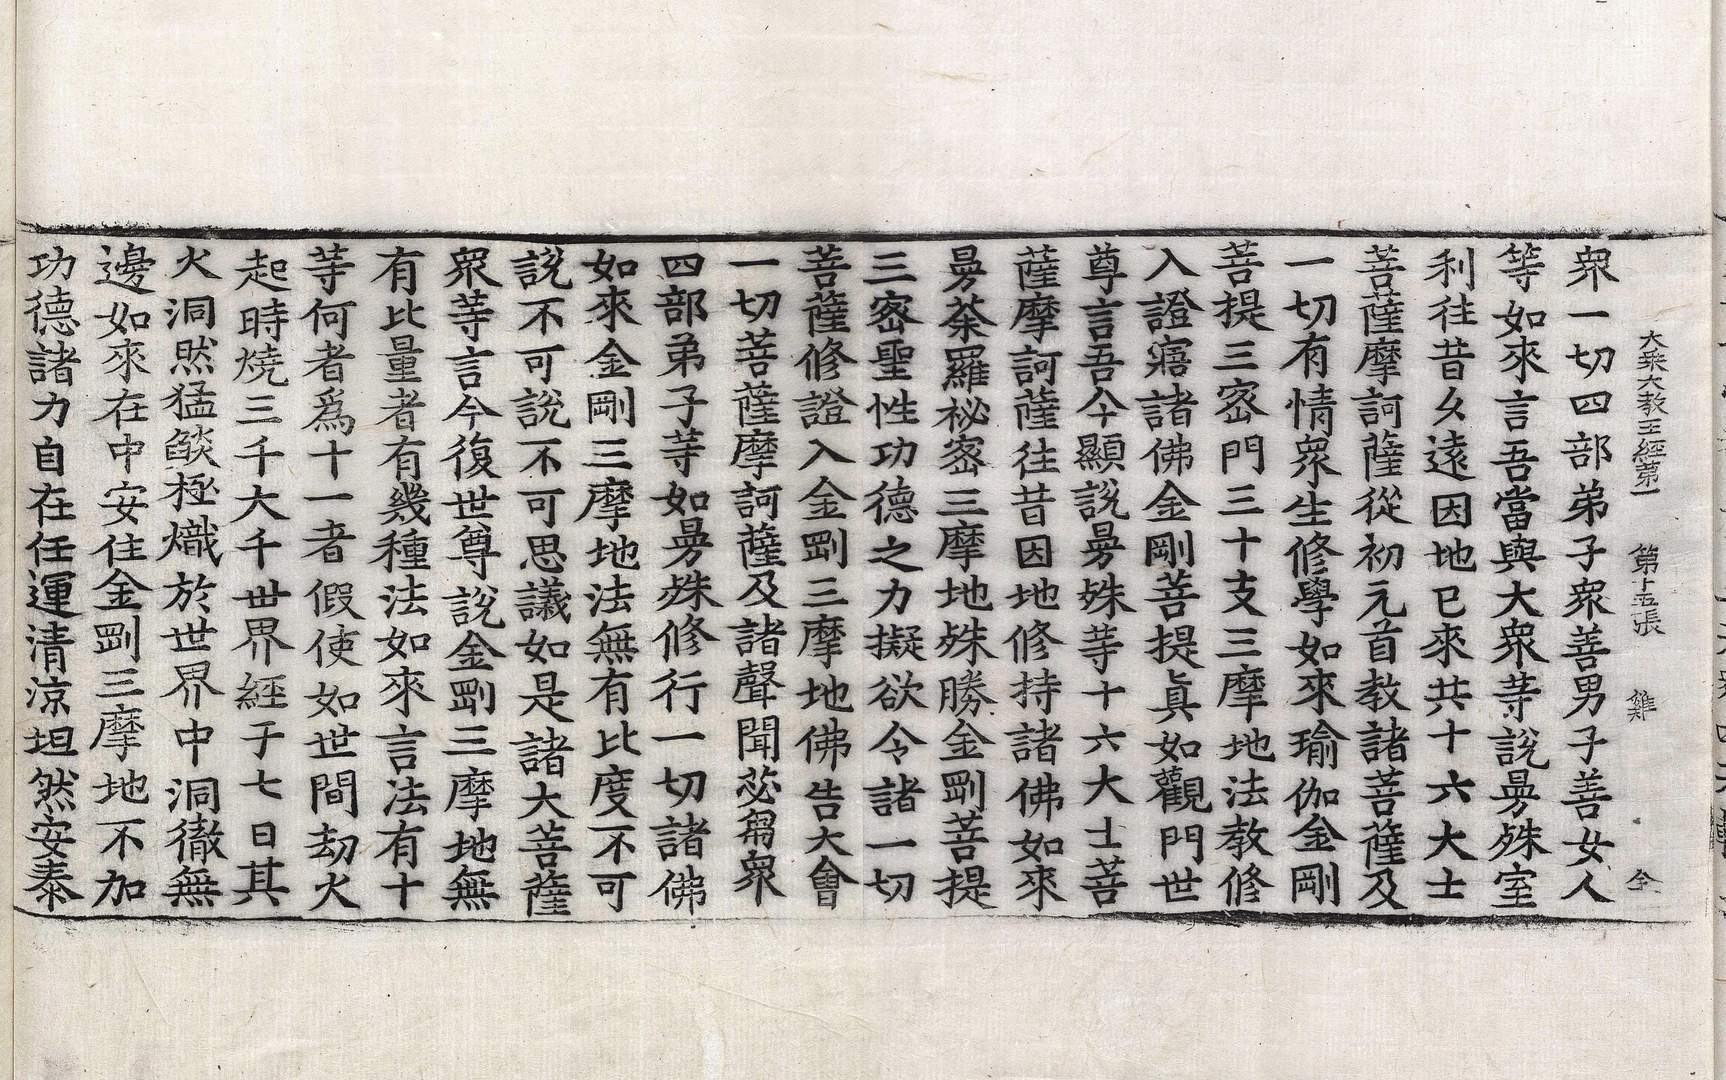 大乘大教王經第一 第十五張 雞 仝
衆一切四部弟子衆善男子善女人
等如來言吾當與大衆等說曼殊室
利往昔久遠因地已來共十六大士
菩薩摩訶薩從初元首教諸菩薩及
一切有情衆生修學如來瑜伽金剛
菩提三密門三十支三摩地法教修
入證寤諸佛金剛菩提眞如觀門世
尊言吾今顯說曼殊等十六大士菩
薩摩訶薩往昔因地修持諸佛如來
曼荼羅秘密三摩地殊勝金剛菩提
三密聖性功德之力擬欲令諸一切
菩薩修證入金剛三摩地佛告大會
一切菩薩摩訶薩及諸聲聞苾芻衆
四部弟子等如曼殊修行一切諸佛
如來金剛三摩地法無有比度不可
說不可說不可思議如是諸大菩薩
衆等言今復世尊說金剛三摩地無
有比量者有幾種法如來言法有十
等何者爲十一者假使如世間劫火
起時燒三千大千世界經于七日其
火洞然猛燄極熾於世界中洞徹無
邊如來在中安住金剛三摩地不加
功德諸力自在任運清涼坦然安泰